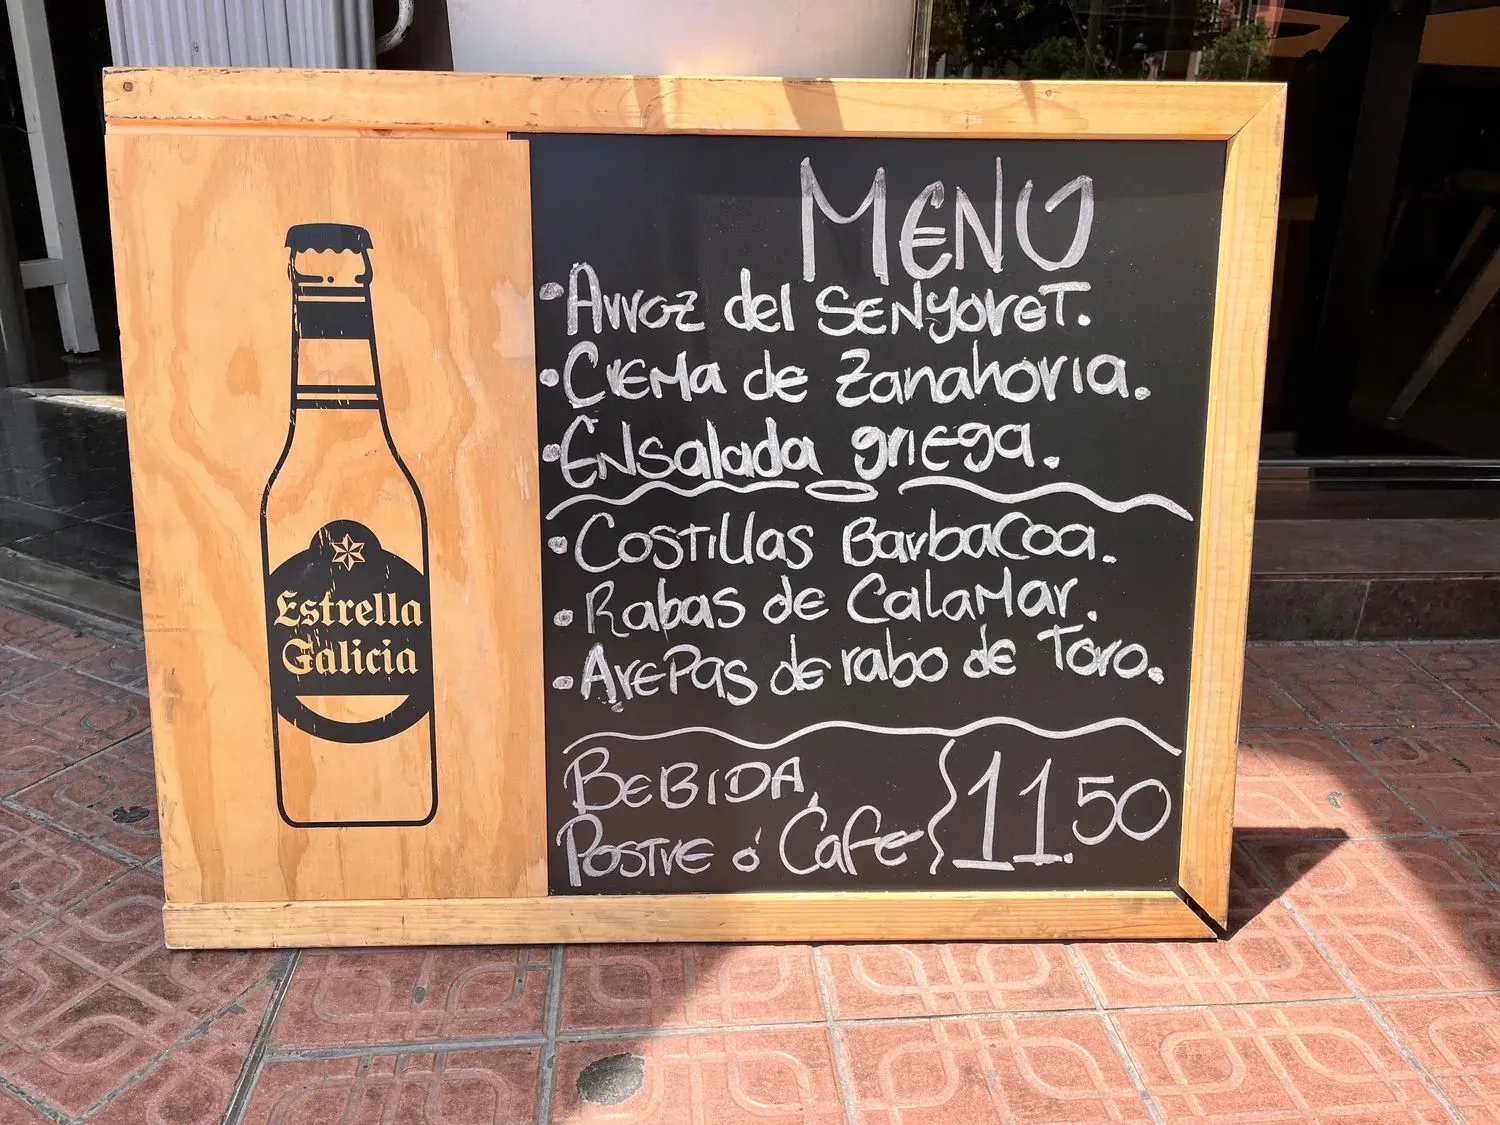 Estrella
Galicia
MENU
• Arroz del SENYORET.
• CREMA de Zanahoria.
• ENsalada griega.
• COSTillas BarbaCOa.
• Rabas de CalaMar.
• AREPas de rabo de Toro.
BEBIDA,
POSTRE ó Cafe } 11.50